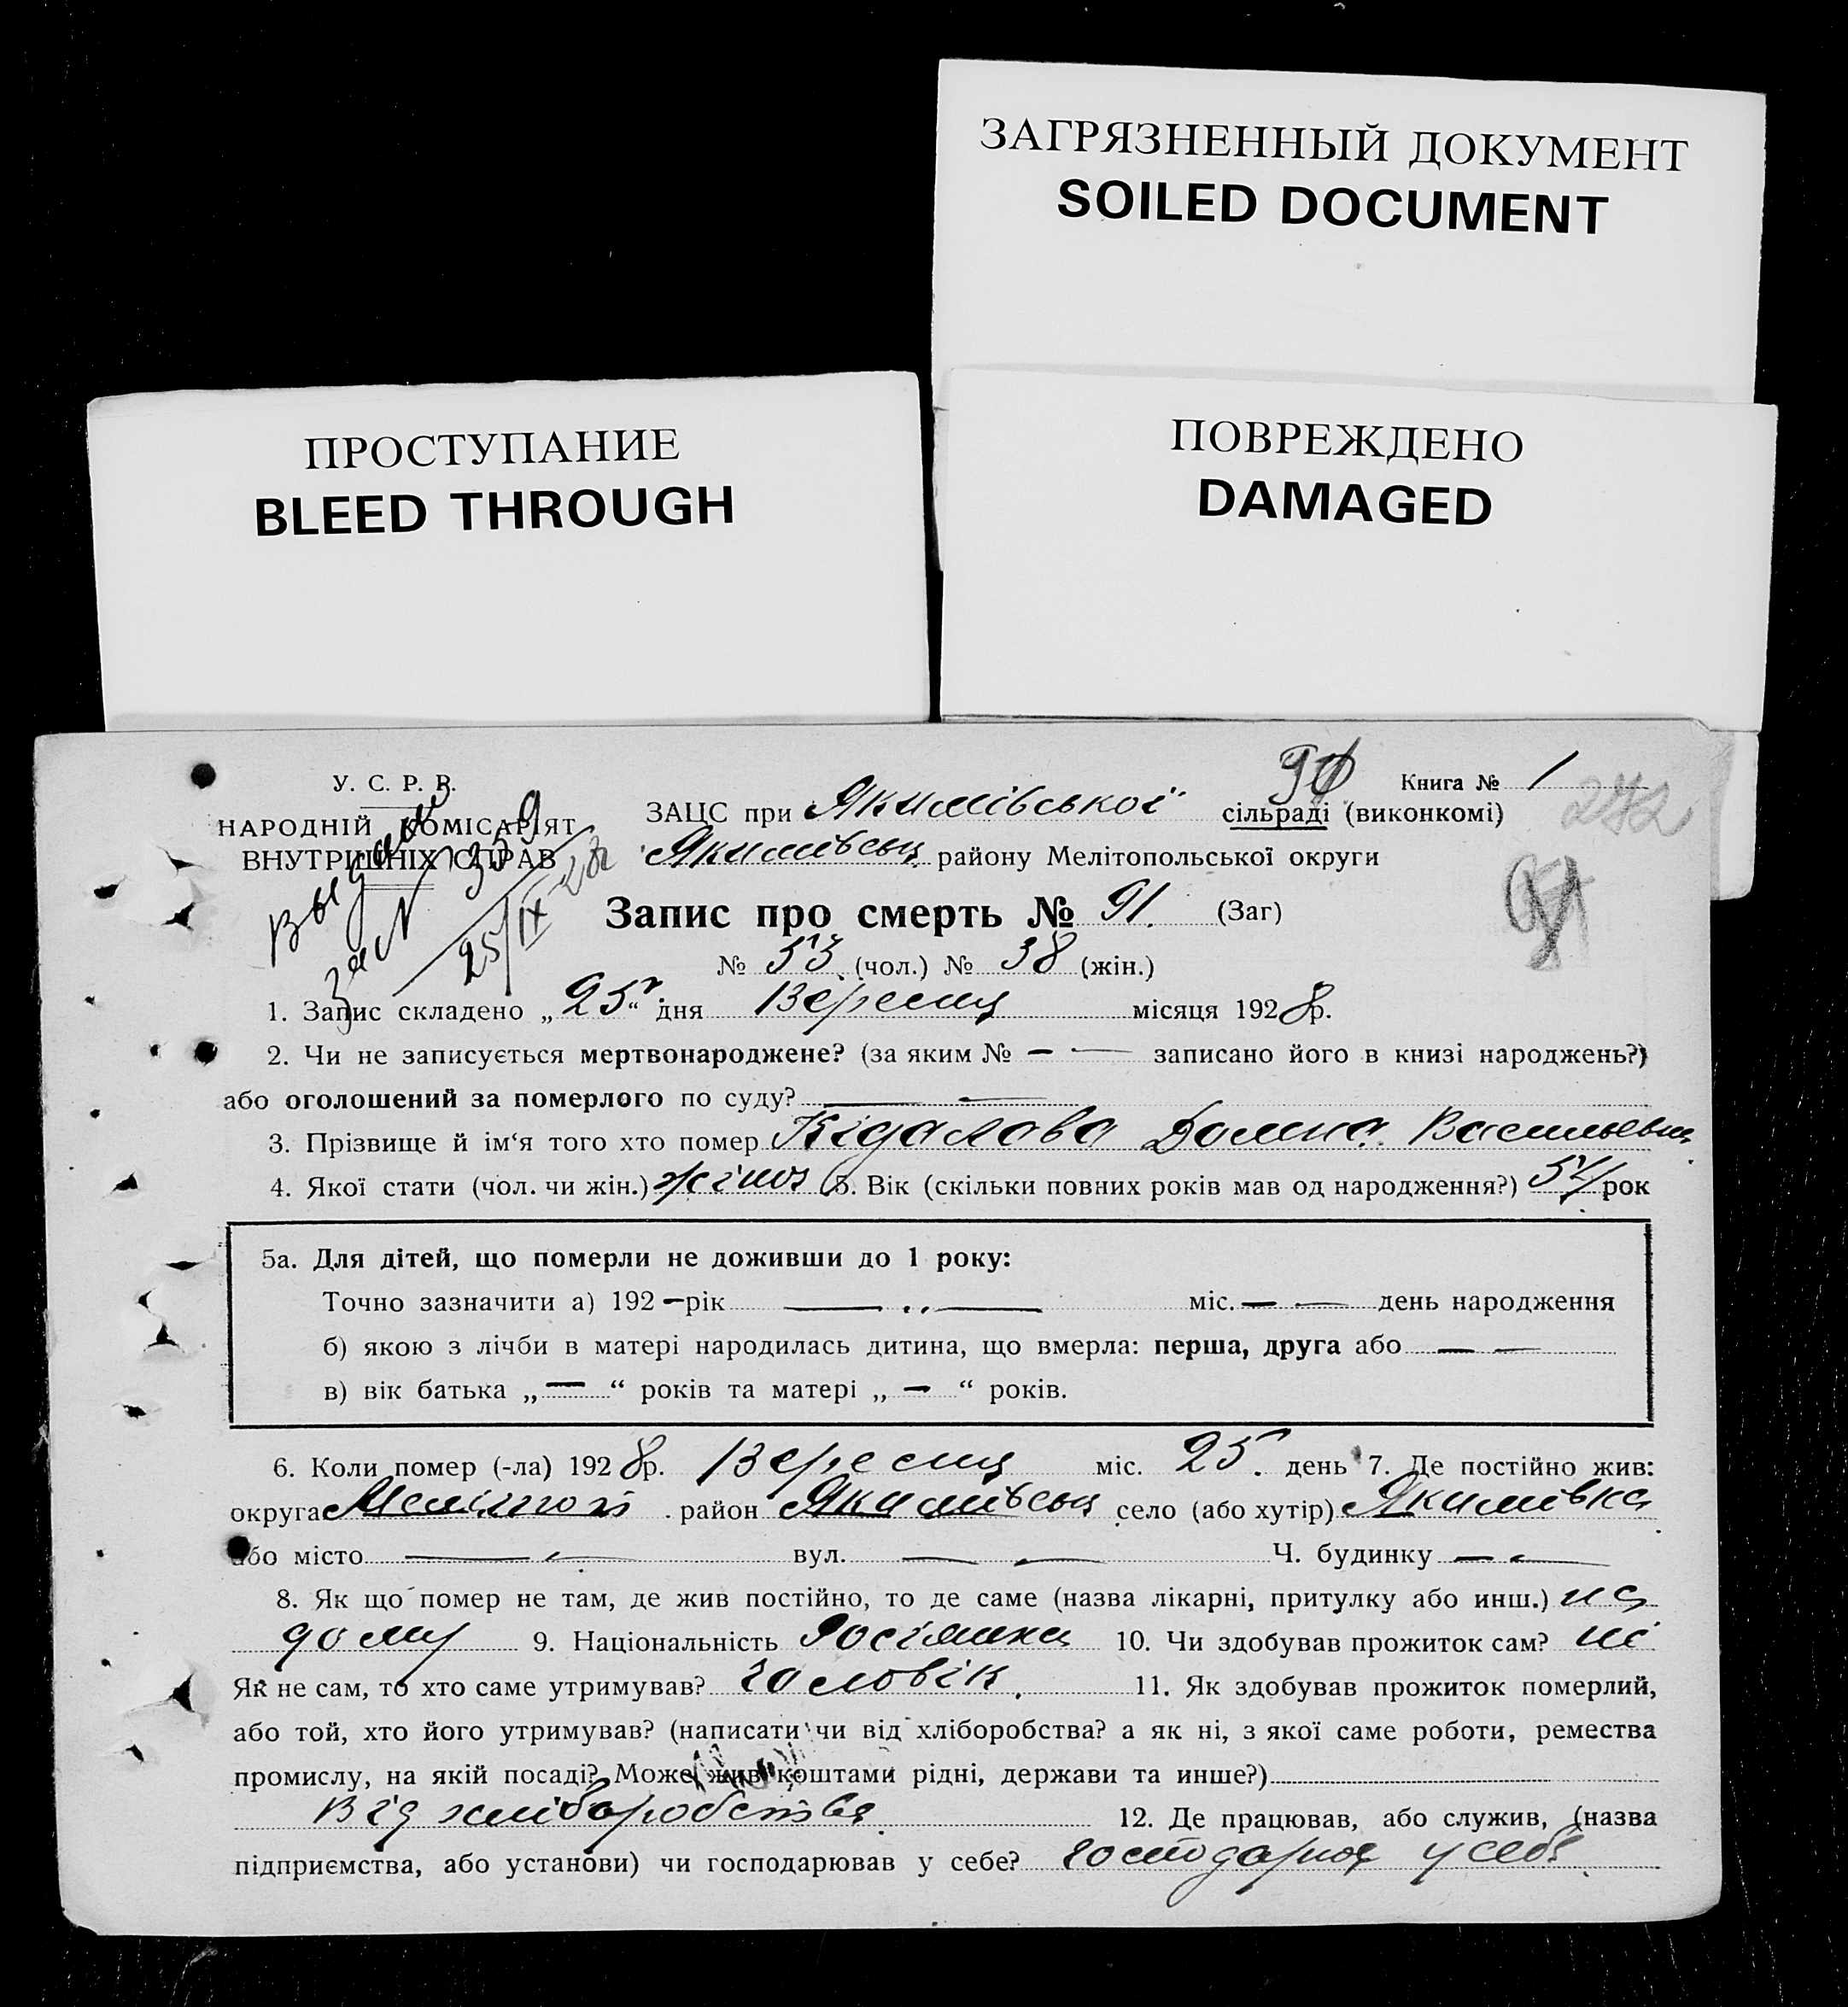 ЗАГРЯЗНЕННЫЙ ДОКУМЕНТ
SOILED DOCUMENT
ПРОСТУПАНИЕ
BLEED THROUGH
ПОВРЕЖДЕНО
DAMAGED
У. С. Р. Р.
НАРОДНІЙ КОМІСАРІЯТ
ВНУТРІШНІХ СПРАВ
Выдан
за № 359
25/IX-28
Книга № 1
272
ЗАЦС при Якимівської сільраді (виконкомі)
Якимівськ району Мелітопольської округи
Запис про смерть № 91. (Заг)
№ 53 (чол.) № 38 (жін.)
1. Запис складено „25“ дня Вересня місяця 1928р.
2. Чи не записується мертвонароджене? (за яким № — — записано його в книзі народжень?)
або оголошений за померлого по суду? — —
3. Прізвище й ім‘я того хто помер Кідалова Домна Васильевна
4. Якої стати (чол. чи жін.) жіноч 5. Вік (скільки повних років мав од народження?) 54 рок
5а. Для дітей, що померли не доживши до 1 року:
Точно зазначити а) 192 — рік — „ — міс. — — день народження
б) якою з лічби в матері народилась дитина, що вмерла: перша, друга або — —
в) вік батька „ — “ років та матері „ — “ років.
6. Коли помер (-ла) 1928р. Вересня міс. 25. день 7. Де постійно жив:
округа Мелітоп район Якимівськ село (або хутір) Якимівка
або місто — — вул. — — Ч. будинку — —
8. Як що помер не там, де жив постійно, то де саме (назва лікарні, притулку або инш.) на
дому 9. Національність Росіянка 10. Чи здобував прожиток сам? ні
Як не сам, то хто саме утримував? чоловік. 11. Як здобував прожиток померлий,
або той, хто його утримував? (написати чи від хліборобства? а як ні, з якої саме роботи, ремества
промислу, на якій посаді? Може жив коштами рідні, держави та инше?)
Від хліборобства. 12. Де працював, або служив, (назва
підприємства, або установи) чи господарював у себе? господарює у себе.